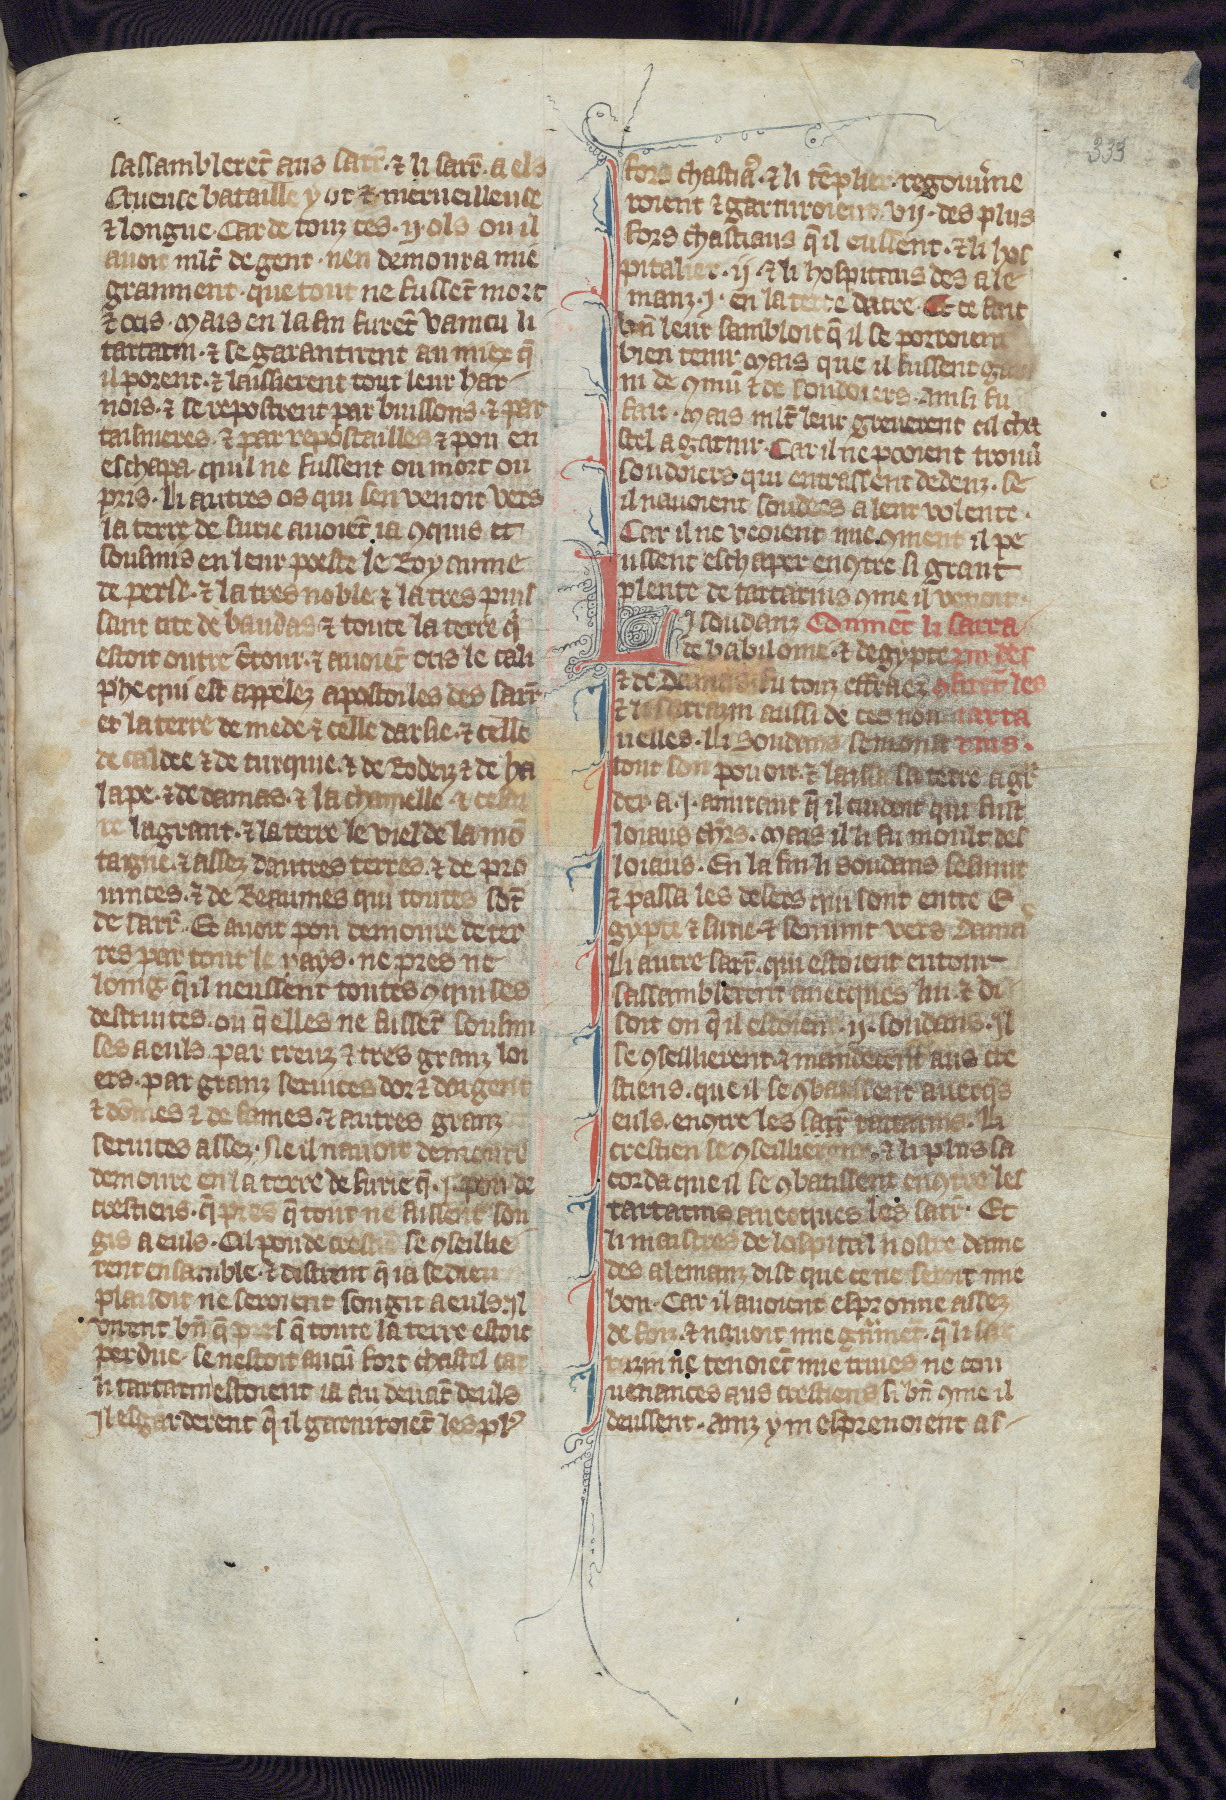 sassamblerēt aus sarr̄. ⁊ li sarr̄. a els
Cruense bataille y ot ⁊ merueilleuse
⁊ longue. Car de touz ces .ij. ols ou il
auoit mlt̄ de gent. nen demoura mie
granment. que tout ne fussēt mort
⁊ ocis. Mais en la fin furēt vaincu li
tartarin. ⁊ se garantirent au miex q̄
il porent. ⁊ laissierent tout leur har
nois. ⁊ se repostrent par buissons. ⁊ par
taisnieres. ⁊ par repostailles ⁊ pou en
eschapa quil ne fussent ou mort ou
pris. Li autres os qui sen venoit vers
la terre de surie auoiēt ia ꝯquis et
sousmis en leur poeste le Royaume
de perse. ⁊ la tres noble ⁊ la tres puis
sant cite de baudas ⁊ toute la terre q̄
estoit outre ētour. ⁊ auoiēt ocis le cali
phe qui est appelez apostoiles des sarr̄.
et la terre de mede. ⁊ celle darsie. ⁊ celle
de caldee ⁊ de turquie. ⁊ de Rodez ⁊ de ha
lape. ⁊ de damas. ⁊ la chamelle. ⁊ cesa
re la grant. ⁊ la terre le viel de la mō
taigne. ⁊ assez dautres terres. ⁊ de pro
uinces. ⁊ de Reaumes qui toutes sōt
de sarr̄. Et auoit pou demoure de ter
res par tout le pays. ne pres ne
loing q̄ il neussent toutes ꝯquises
destruites. ou q̄ elles ne fussēt sousmi
ses a euls par treuz ⁊ tres granz loi
ers. par granz seruices dor ⁊ dargent
⁊ dōmes ⁊ de fames. ⁊ autres granz
seruices assez. Ne il nauoit demoure
demoure en la terre de surie q̄ .j. pou de
crestiens. q̄ pres q̄ tout ne fussent sou
gis a euls. Cil pou de crestiens se ꝯseillie
rent ensamble. ⁊ distrent q̄ ia se dieu
plaisoit ne seroient sougit a euls. Il
virent bn̄ q̄ pres q̄ toute la terre estoit
perdue. se nestoit aucū fort chastel car
li tartarin estoient ia au deuāt deuls
Il esgarderent q̄ il garniroiēt les plꝰ
fors chastiaꝰ. ⁊ li tēplier. regouuerne
roient ⁊ garniroient .vij. des plus
fors chastiaus q̄ il eussent. ⁊ li hos
pitalier. ij. ⁊ li hospitaus des ale
manz .j. en la terre dacre. Et ce fait
bn̄ leur sambloit q̄ il se porroient
bien tenir. Mais que il fussent gar
ni de ꝯmū ⁊ de soudoiers. Ainsi fu
fait. Mais mlt̄ leur greuerent cil cha
stel a garnir. Car il ne pooient trouū
soudoiers. qui entrassent dedenz. se
il nauoient soudees a leur volente.
Car il ne veoient mie ꝯment il pe
ussent eschaper enꝯtre si grant
plente de tartarins ꝯme il venoit.
Li soudanz Cōmēt li sarra
de babilome. ⁊ degypte zin des
⁊ de Damas fu touz effraez
⁊ li sarrazin aussi de ces nou tarta
uelles. Li Soudans semonst rins.
tout son pouoir. ⁊ laissa sa terre a gr̄
der. a .j. amiraut q̄ il cuidoit qui fust
loiaus ch̄rs. Mais il li fu moult des
loiaus. En la fin li soudans sesmut
⁊ passa les deserts qui sont entre E
gypte ⁊ surie. ⁊ sen vint vers Damas
Li autre sarr̄. qui estoient entour
sassamblerent auecques lui. ⁊ di
soit on q̄ il estoient .ij. soudans. Il
se ꝯseillierent. ⁊ manderent aus cre
stiens. que il se ꝯbatissent auecq̄s
euls. enꝯtre les sarr̄. tartarins. Li
crestien se ꝯseillierent. ⁊ li plus sa
corda que il se ꝯbatissent enꝯtre les
tartarins auecques les sarr̄. Et
li maistres de lospital nostre dame
des alemanz dist que ce ne seroit mie
bon. Car il auoient esprouue assez
de foiz. ⁊ nauoit mie grāment. q̄ li sar
razin ne tenoiēt mie triues ne cou
uenances aus crestiens si bn̄ ꝯme il
deussent. ainz y m esprenoient as